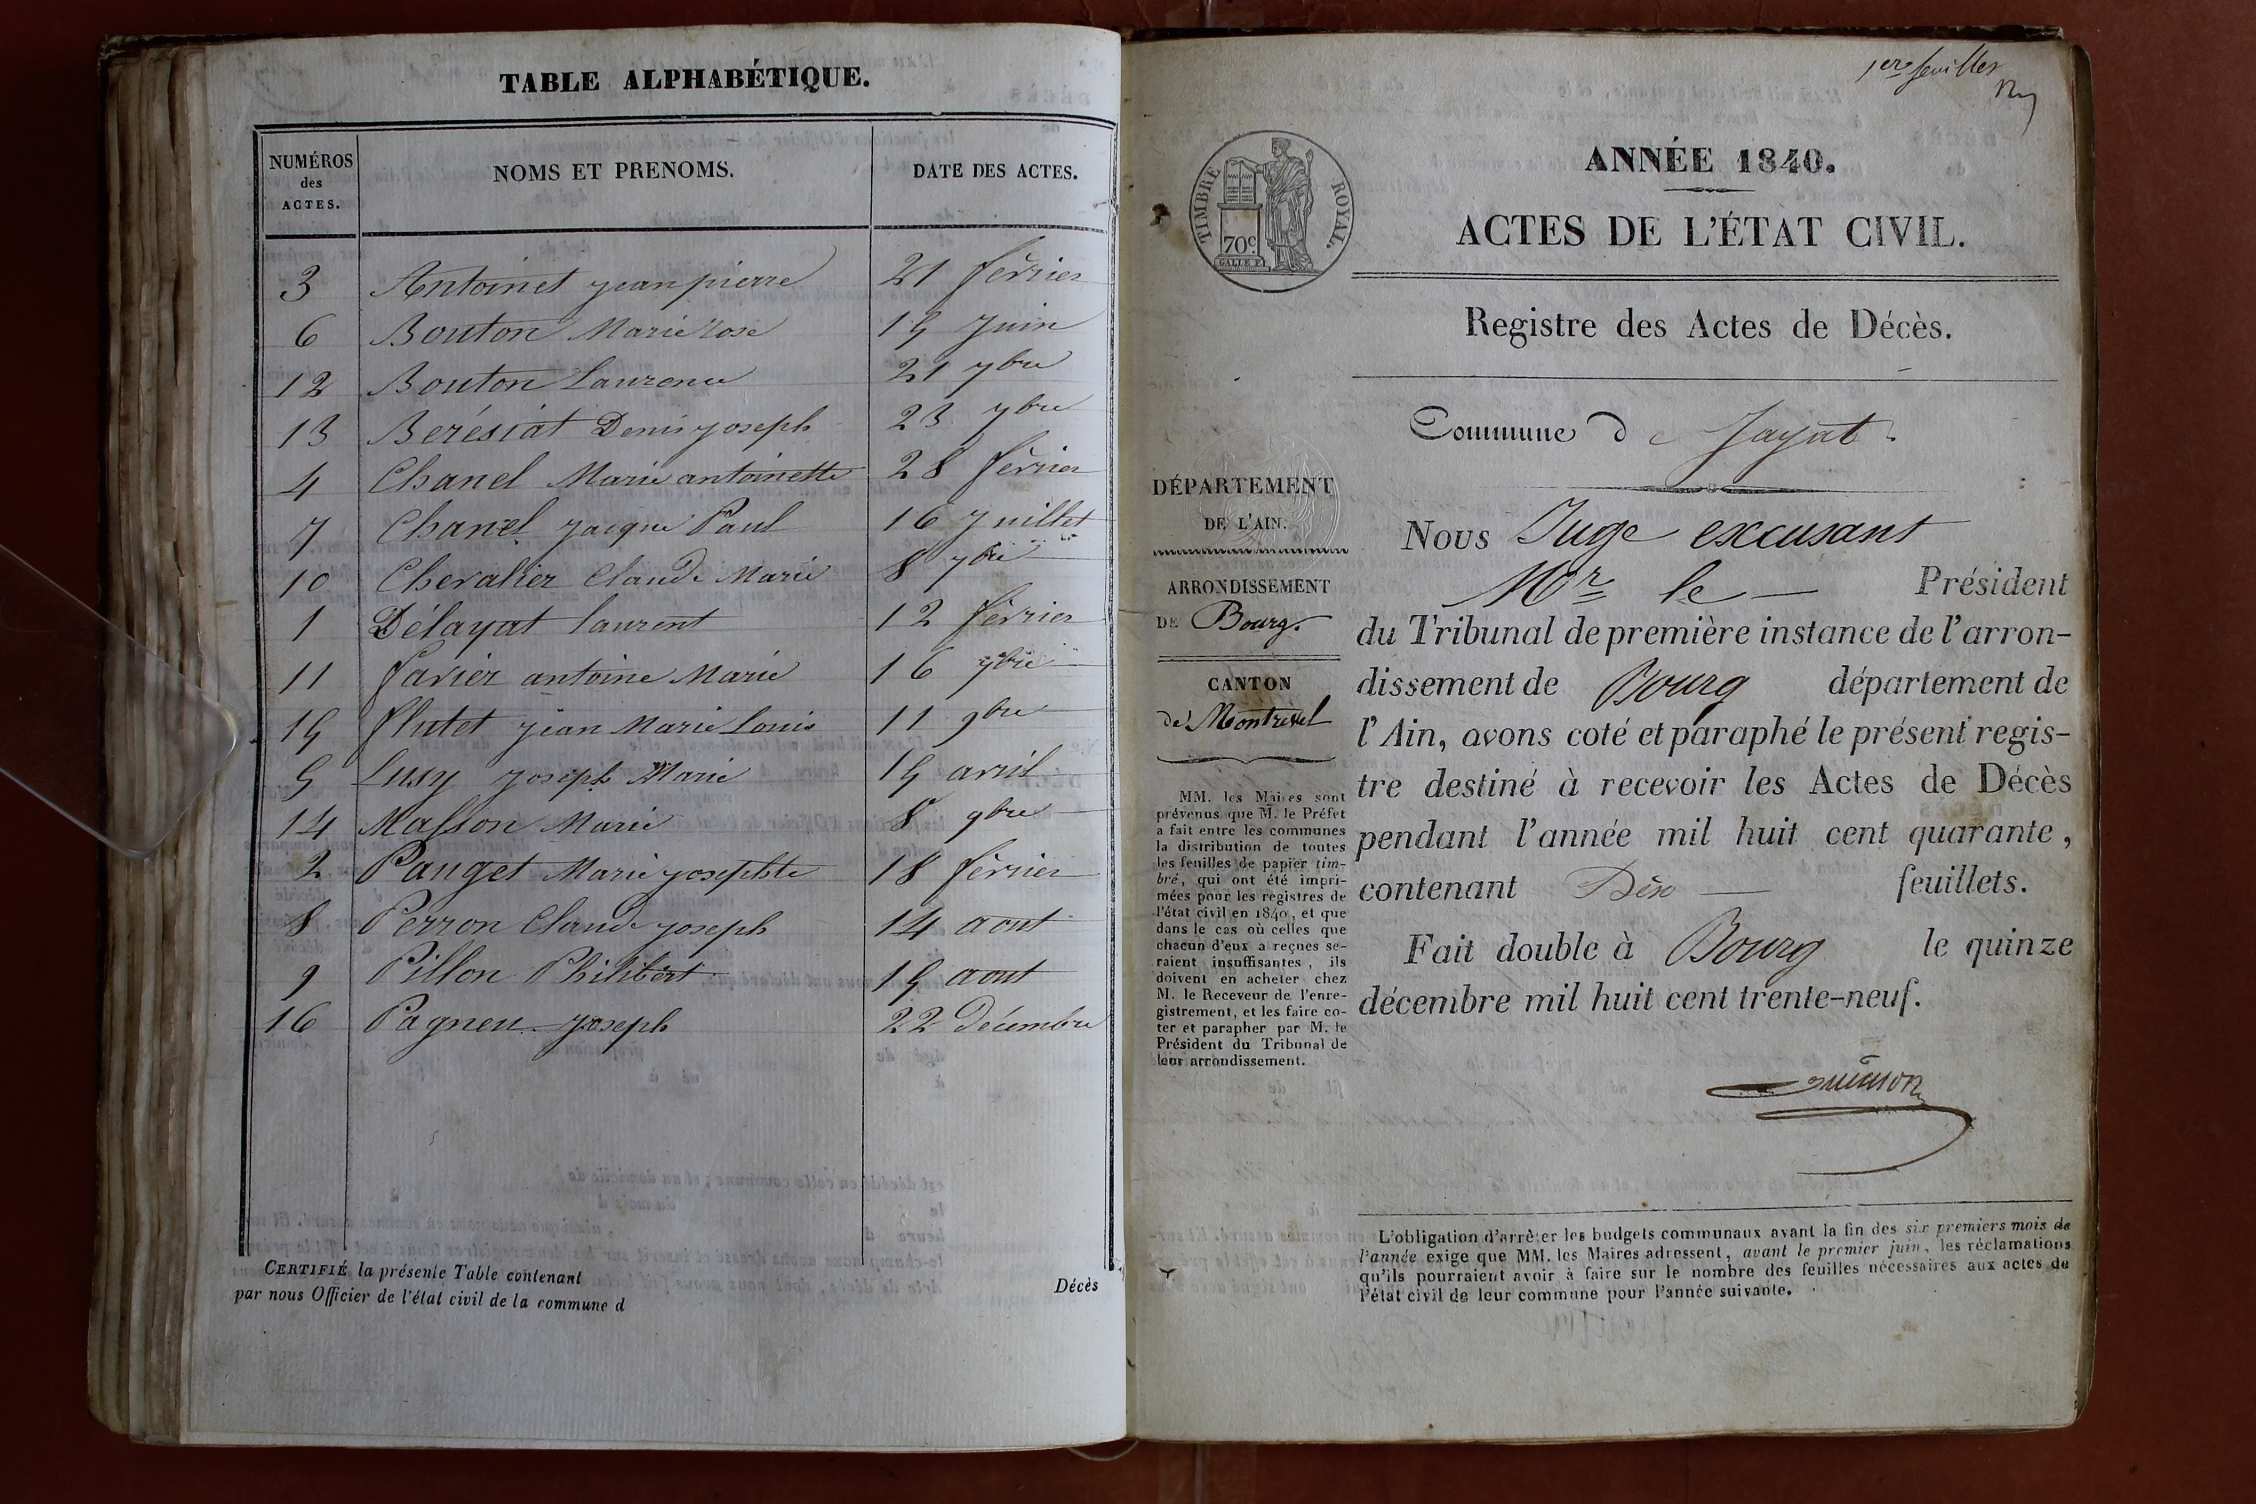 TABLE ALPHABÉTIQUE.
NUMÉROS des ACTES. NOMS ET PRENOMS. DATE DES ACTES.
3 Antoinet jean pierre 21 février
6 Bouton Marie Rose 15 Juin
12 Bouton Laurence 21 7bre
13 Berésiat Denis joseph 23 7bre
4 Chanel Marie antoinette 28 février
7 Chanel jacque Paul 16 Juillet
10 Chevalier Claude Marie 8 7bre
1 Délayat laurent 12 février
11 favier antoine Marie 16 7bre
15 flutet jean Marie Louis 11 9bre
5 Lusy joseph Marie 15 avril
14 Masson Marie 8 9bre
2 Pauget Marie josephte 18 février
8 Perron Claude joseph 14 aout
9 Pillon Philibert 15 aout
16 Pagneu joseph 22 Décembre
CERTIFIÉ la présente Table contenant Décès
par nous Officier de l'état civil de la commune d
1er feuillet
TIMBRE ROYAL.
70c
ANNÉE 1840.
ACTES DE L'ÉTAT CIVIL.
Registre des Actes de Décès.
Commune de Jayat.
DÉPARTEMENT
DE L'AIN.
ARRONDISSEMENT
DE Bourg.
CANTON
de Montrevel
MM. les Maires sont
prévenus que M. le Préfet
a fait entre les communes
la distribution de toutes
les feuilles de papier tim-
bré, qui ont été impri-
mées pour les registres de
l'état civil en 1840, et que
dans le cas où celles que
chacun d'eux a reçues se-
raient insuffisantes, ils
doivent en acheter chez
M. le Receveur de l'enre-
gistrement, et les faire co-
ter et parapher par M. le
Président du Tribunal de
leur arrondissement.
Nous Juge excusant
Mr le Président
du Tribunal de première instance de l'arron-
dissement de Bourg département de
l'Ain, avons coté et paraphé le présent regis-
tre destiné à recevoir les Actes de Décès
pendant l'année mil huit cent quarante,
contenant Dix feuillets.
Fait double à Bourg le quinze
décembre mil huit cent trente-neuf.
L'obligation d'arrêter les budgets communaux avant la fin des six premiers mois de
l'année exige que MM. les Maires adressent, avant le premier juin, les réclamations
qu'ils pourraient avoir à faire sur le nombre des feuilles nécessaires aux actes de
l'état civil de leur commune pour l'année suivante.